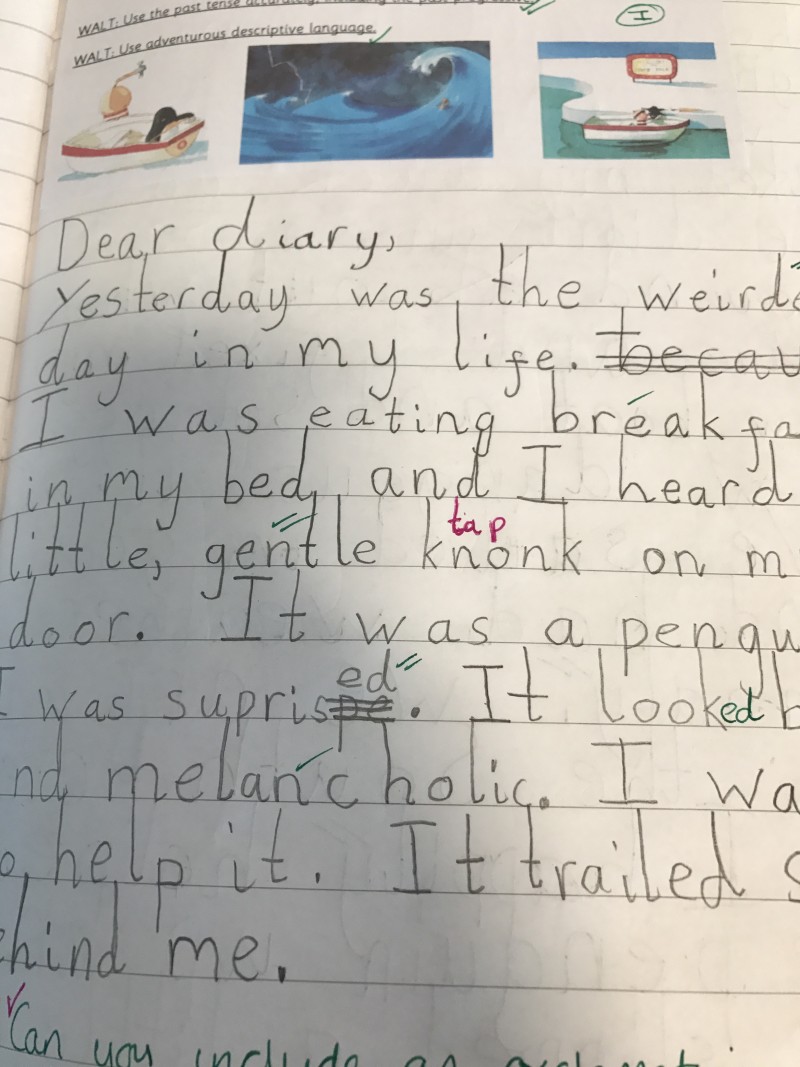 WALT: Use the past tense accurately, including the past progressive
WALT: Use adventurous descriptive language.
I
Dear diary,
Yesterday was the weird
day in my life. becau
I was eating breakfa
in my bed and I heard
little, gentle knonk on m
tap
door. It was a pengu
I was suprised. It looked b
nd melancholic. I wa
o help it. It trailed s
ehind me.
Can you include an